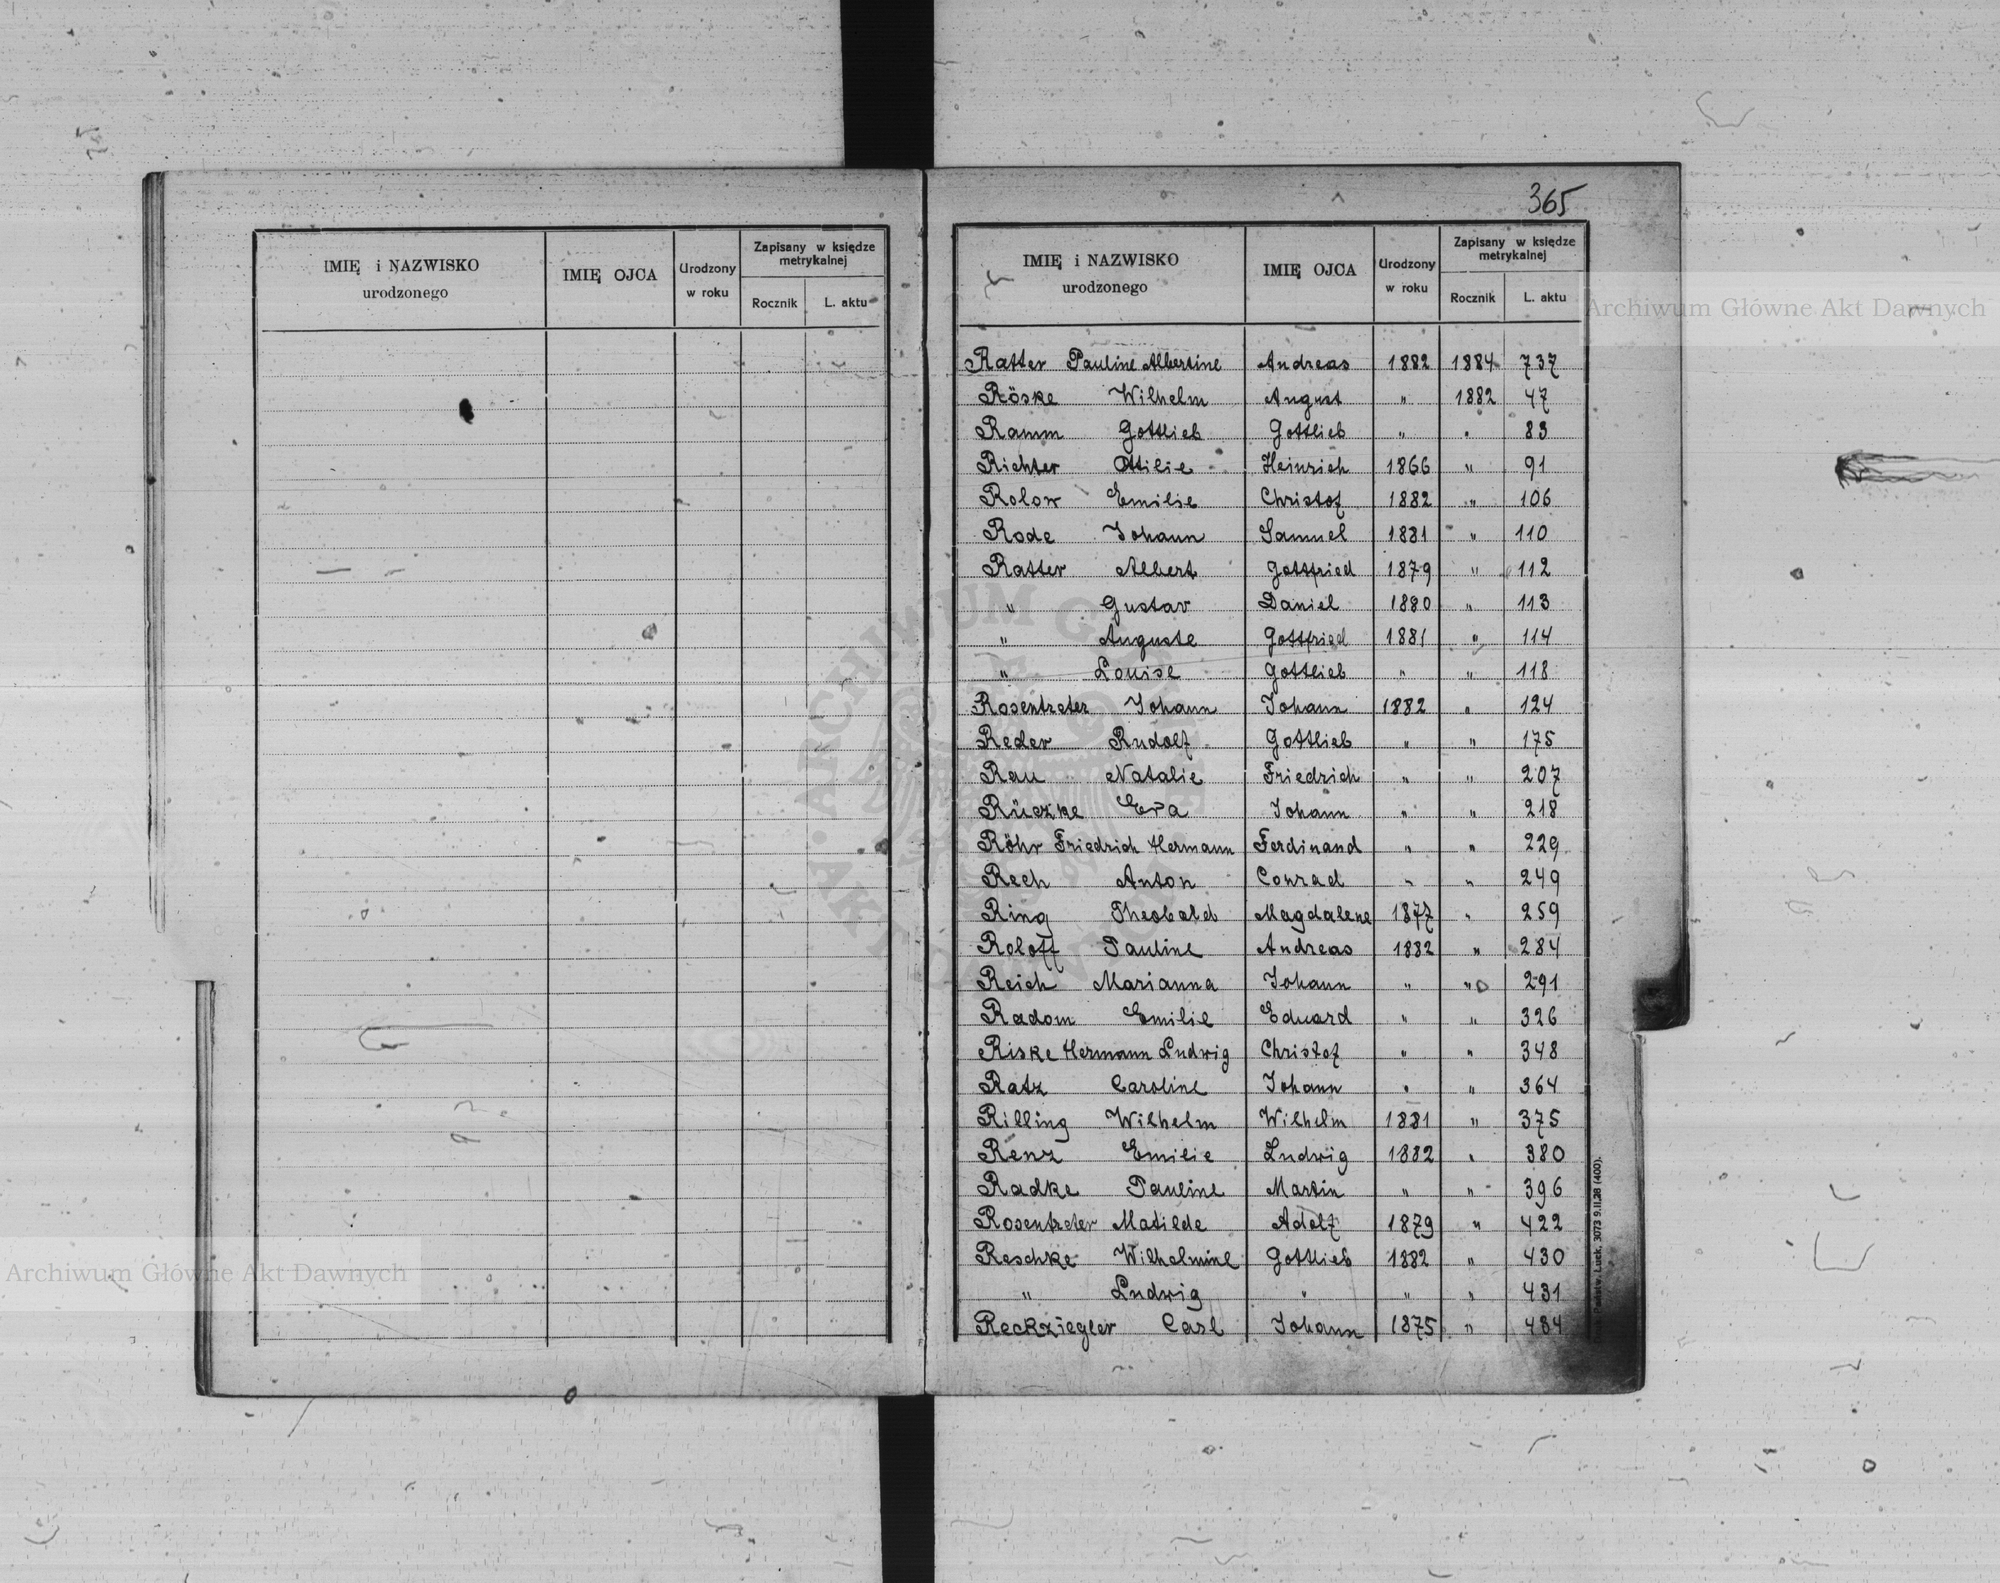 365
IMIĘ i NAZWISKO urodzonego IMIĘ OJCA Urodzony w roku Zapisany w księdze metrykalnej Rocznik L. aktu
IMIĘ i NAZWISKO urodzonego IMIĘ OJCA Urodzony w roku Zapisany w księdze metrykalnej Rocznik L. aktu
Archiwum Główne Akt Dawnych
Ratter Pauline Albertine Andreas 1882 1884 737
Röske Wilhelm August " 1882 47
Ramm Gottlieb Gottlieb " " 83
Richter Ottilie Heinrich 1866 " 91
Rolow Emilie Christof 1882 " 106
Rode Johann Samuel 1881 " 110
Ratter Albert Gottfried 1879 " 112
" Gustav Daniel 1880 " 113
" Auguste Gottfried 1881 " 114
" Louise Gottlieb " " 118
Rosentreter Johann Johann 1882 " 124
Reder Rudolf Gottlieb " " 175
Rau Natalie Friedrich " " 207
Rüczke Eva Johann " " 218
Röhr Friedrich Hermann Ferdinand " " 229
Rech Anton Conrad " " 249
Ring Theobald Magdalene 1877 " 259
Roloff Pauline Andreas 1882 " 284
Reich Marianna Johann " " 291
Radom Emilie Eduard " " 326
Riske Hermann Ludwig Christof " " 348
Ratz Caroline Johann " " 364
Rilling Wilhelm Wilhelm 1881 " 375
Renz Emilie Ludwig 1882 " 380
Radke Pauline Martin " " 396
Rosentreter Matilde Adolf 1879 " 422
Reschke Wilhelmine Gottlieb 1882 " 430
" Ludwig " " " 431
Reckziegler Carl Johann 1875 " 484
Państw. Łuck. 3073 9.II.28 (400).
Archiwum Główne Akt Dawnych
ARCHIWUM GŁÓWNE AKT DAWNYCH